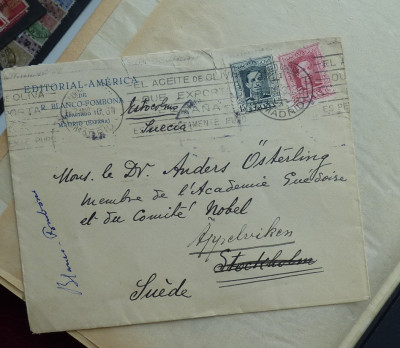 EDITORIAL-AMÉRICA
DE
R. BLANCO-FOMBONA
MADRID (ESPAÑA)
EL ACEITE DE OLIVA
QUE EXPORTA
ESPAÑA
Estocolmo
Suecia
MADRID
Mons. le Dr. Anders Österling
membre de l'Académie Suédoise
et du Comité Nobel
Äppelviken
Stockholm
Suède
Blanco-Fombona